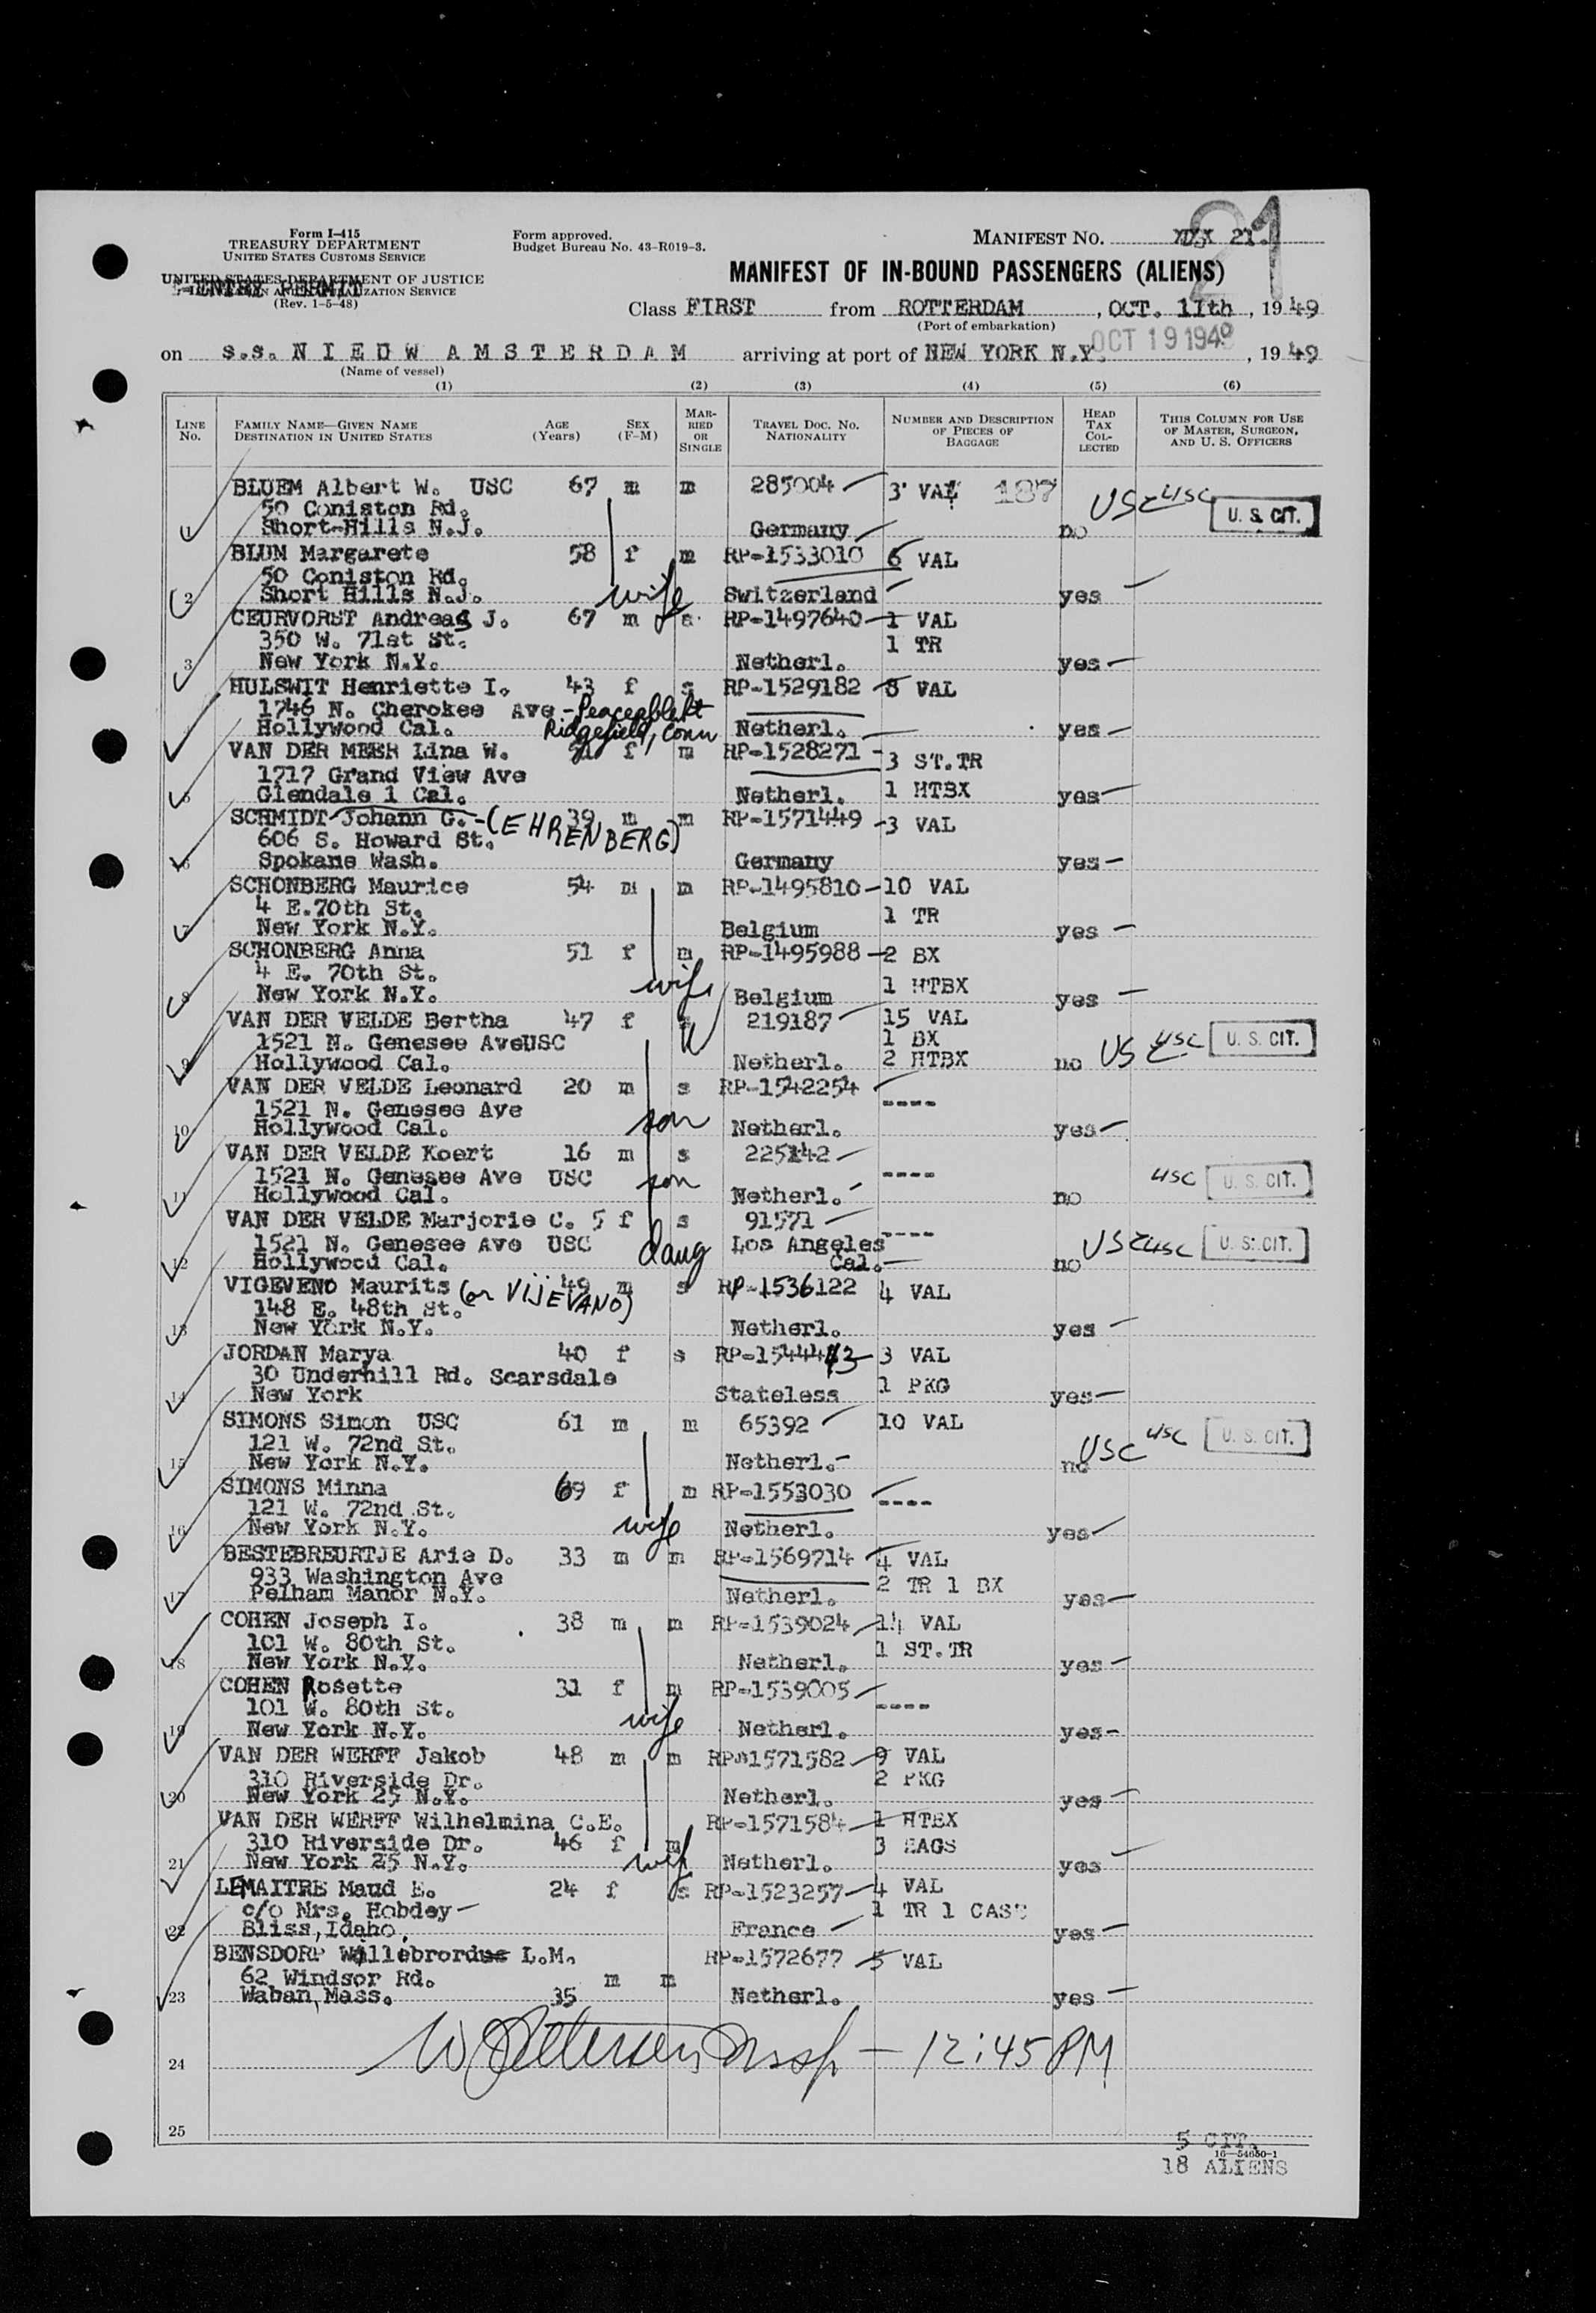 Form I-415
TREASURY DEPARTMENT
UNITED STATES CUSTOMS SERVICE
UNITED STATES DEPARTMENT OF JUSTICE
(Rev. 1-5-48)
Form approved.
Budget Bureau No. 43-R019-3.
MANIFEST NO. 21.
21
MANIFEST OF IN-BOUND PASSENGERS (ALIENS)
Class FIRST from ROTTERDAM, OCT. 11th, 1949
(Port of embarkation)
on s.s. NIEUW AMSTERDAM arriving at port of NEW YORK N.Y. OCT 19 1949, 1949
(Name of vessel)
(1) (2) (3) (4) (5) (6)
LINE No. FAMILY NAME—GIVEN NAME DESTINATION IN UNITED STATES AGE (Years) SEX (F-M) MARRIED OR SINGLE TRAVEL DOC. NO. NATIONALITY NUMBER AND DESCRIPTION OF PIECES OF BAGGAGE HEAD TAX COLLECTED THIS COLUMN FOR USE OF MASTER, SURGEON, AND U. S. OFFICERS
BLUEM Albert W. USC 67 m m 285004 3 VAL 187 USC USC U. S. CIT.
50 Coniston Rd.
1 Short-Hills N.J. Germany no
BLUM Margarete 58 f m RP-1533010 6 VAL
50 Coniston Rd.
2 Short Hills N.J. wife Switzerland yes
CEURVORST Andreas J. 67 m s RP-1497640 1 VAL
350 W. 71st St. 1 TR
3 New York N.Y. Netherl. yes
HULSWIT Henriette I. 43 f s RP-1529182 8 VAL
1746 N. Cherokee Ave - Peaceable St
Hollywood Cal. Ridgefield, Conn Netherl. yes
VAN DER MEER Lina W. f m RP-1528271 3 ST.TR
1717 Grand View Ave
5 Glendale 1 Cal. Netherl. 1 HTBX yes
SCHMIDT Johann G. - (EHRENBERG) 39 m m RP-1571449 3 VAL
606 S. Howard St.
6 Spokane Wash. Germany yes
SCHONBERG Maurice 54 m m RP-1495810 10 VAL
4 E.70th St. 1 TR
7 New York N.Y. Belgium yes
SCHONBERG Anna 51 f m RP-1495988 2 BX
4 E. 70th St. 1 HTBX
8 New York N.Y. wife Belgium yes
VAN DER VELDE Bertha 47 f W 219187 15 VAL
1521 N. Genesee Ave USC 1 BX USC USC U. S. CIT.
9 Hollywood Cal. Netherl. 2 HTBX no
VAN DER VELDE Leonard 20 m s RP-1542254 ----
1521 N. Genesee Ave
10 Hollywood Cal. son Netherl. yes
VAN DER VELDE Koert 16 m s 225142 ----
1521 N. Genesee Ave USC son USC U. S. CIT.
11 Hollywood Cal. Netherl. no
VAN DER VELDE Marjorie C. 5 f s 91571 ----
1521 N. Genesee Ave USC daug Los Angeles USC USC U. S. CIT.
12 Hollywood Cal. Cal. no
VIGEVENO Maurits (or VIJEVANO) 49 m s RP-1536122 4 VAL
148 E. 48th St.
13 New York N.Y. Netherl. yes
JORDAN Marya 40 f s RP-154443 3 VAL
30 Underhill Rd. Scarsdale 1 PKG
14 New York Stateless yes
SIMONS Simon USC 61 m m 65392 10 VAL
121 W. 72nd St. USC USC U. S. CIT.
15 New York N.Y. Netherl. no
SIMONS Minna 69 f m RP-1553030 ----
121 W. 72nd St.
16 New York N.Y. wife Netherl. yes
BESTEBREURTJE Arie D. 33 m m RP-1569714 4 VAL
933 Washington Ave 2 TR 1 BX
17 Pelham Manor N.Y. Netherl. yes
COHEN Joseph I. 38 m m RP-1539024 14 VAL
101 W. 80th St. 1 ST.TR
18 New York N.Y. Netherl. yes
COHEN Rosette 31 f m RP-1539005 ----
101 W. 80th St.
19 New York N.Y. wife Netherl. yes
VAN DER WERFF Jakob 48 m m RP-1571582 9 VAL
310 Riverside Dr. 2 PKG
20 New York 25 N.Y. Netherl. yes
VAN DER WERFF Wilhelmina C.E. RP-1571584 1 HTBX
310 Riverside Dr. 46 f m 3 BAGS
21 New York 25 N.Y. wife Netherl. yes
LEMAITRE Maud E. 24 f s RP-1523257 4 VAL
c/o Mrs. Hobdey 1 TR 1 CAST
22 Bliss, Idaho. France yes
BENSDORP Willebrordus L.M. RP-1572677 5 VAL
62 Windsor Rd. m m
23 Waban, Mass. 35 Netherl. yes
24 12:45 PM
25
5 CIT.
16—54650-1
18 ALIENS